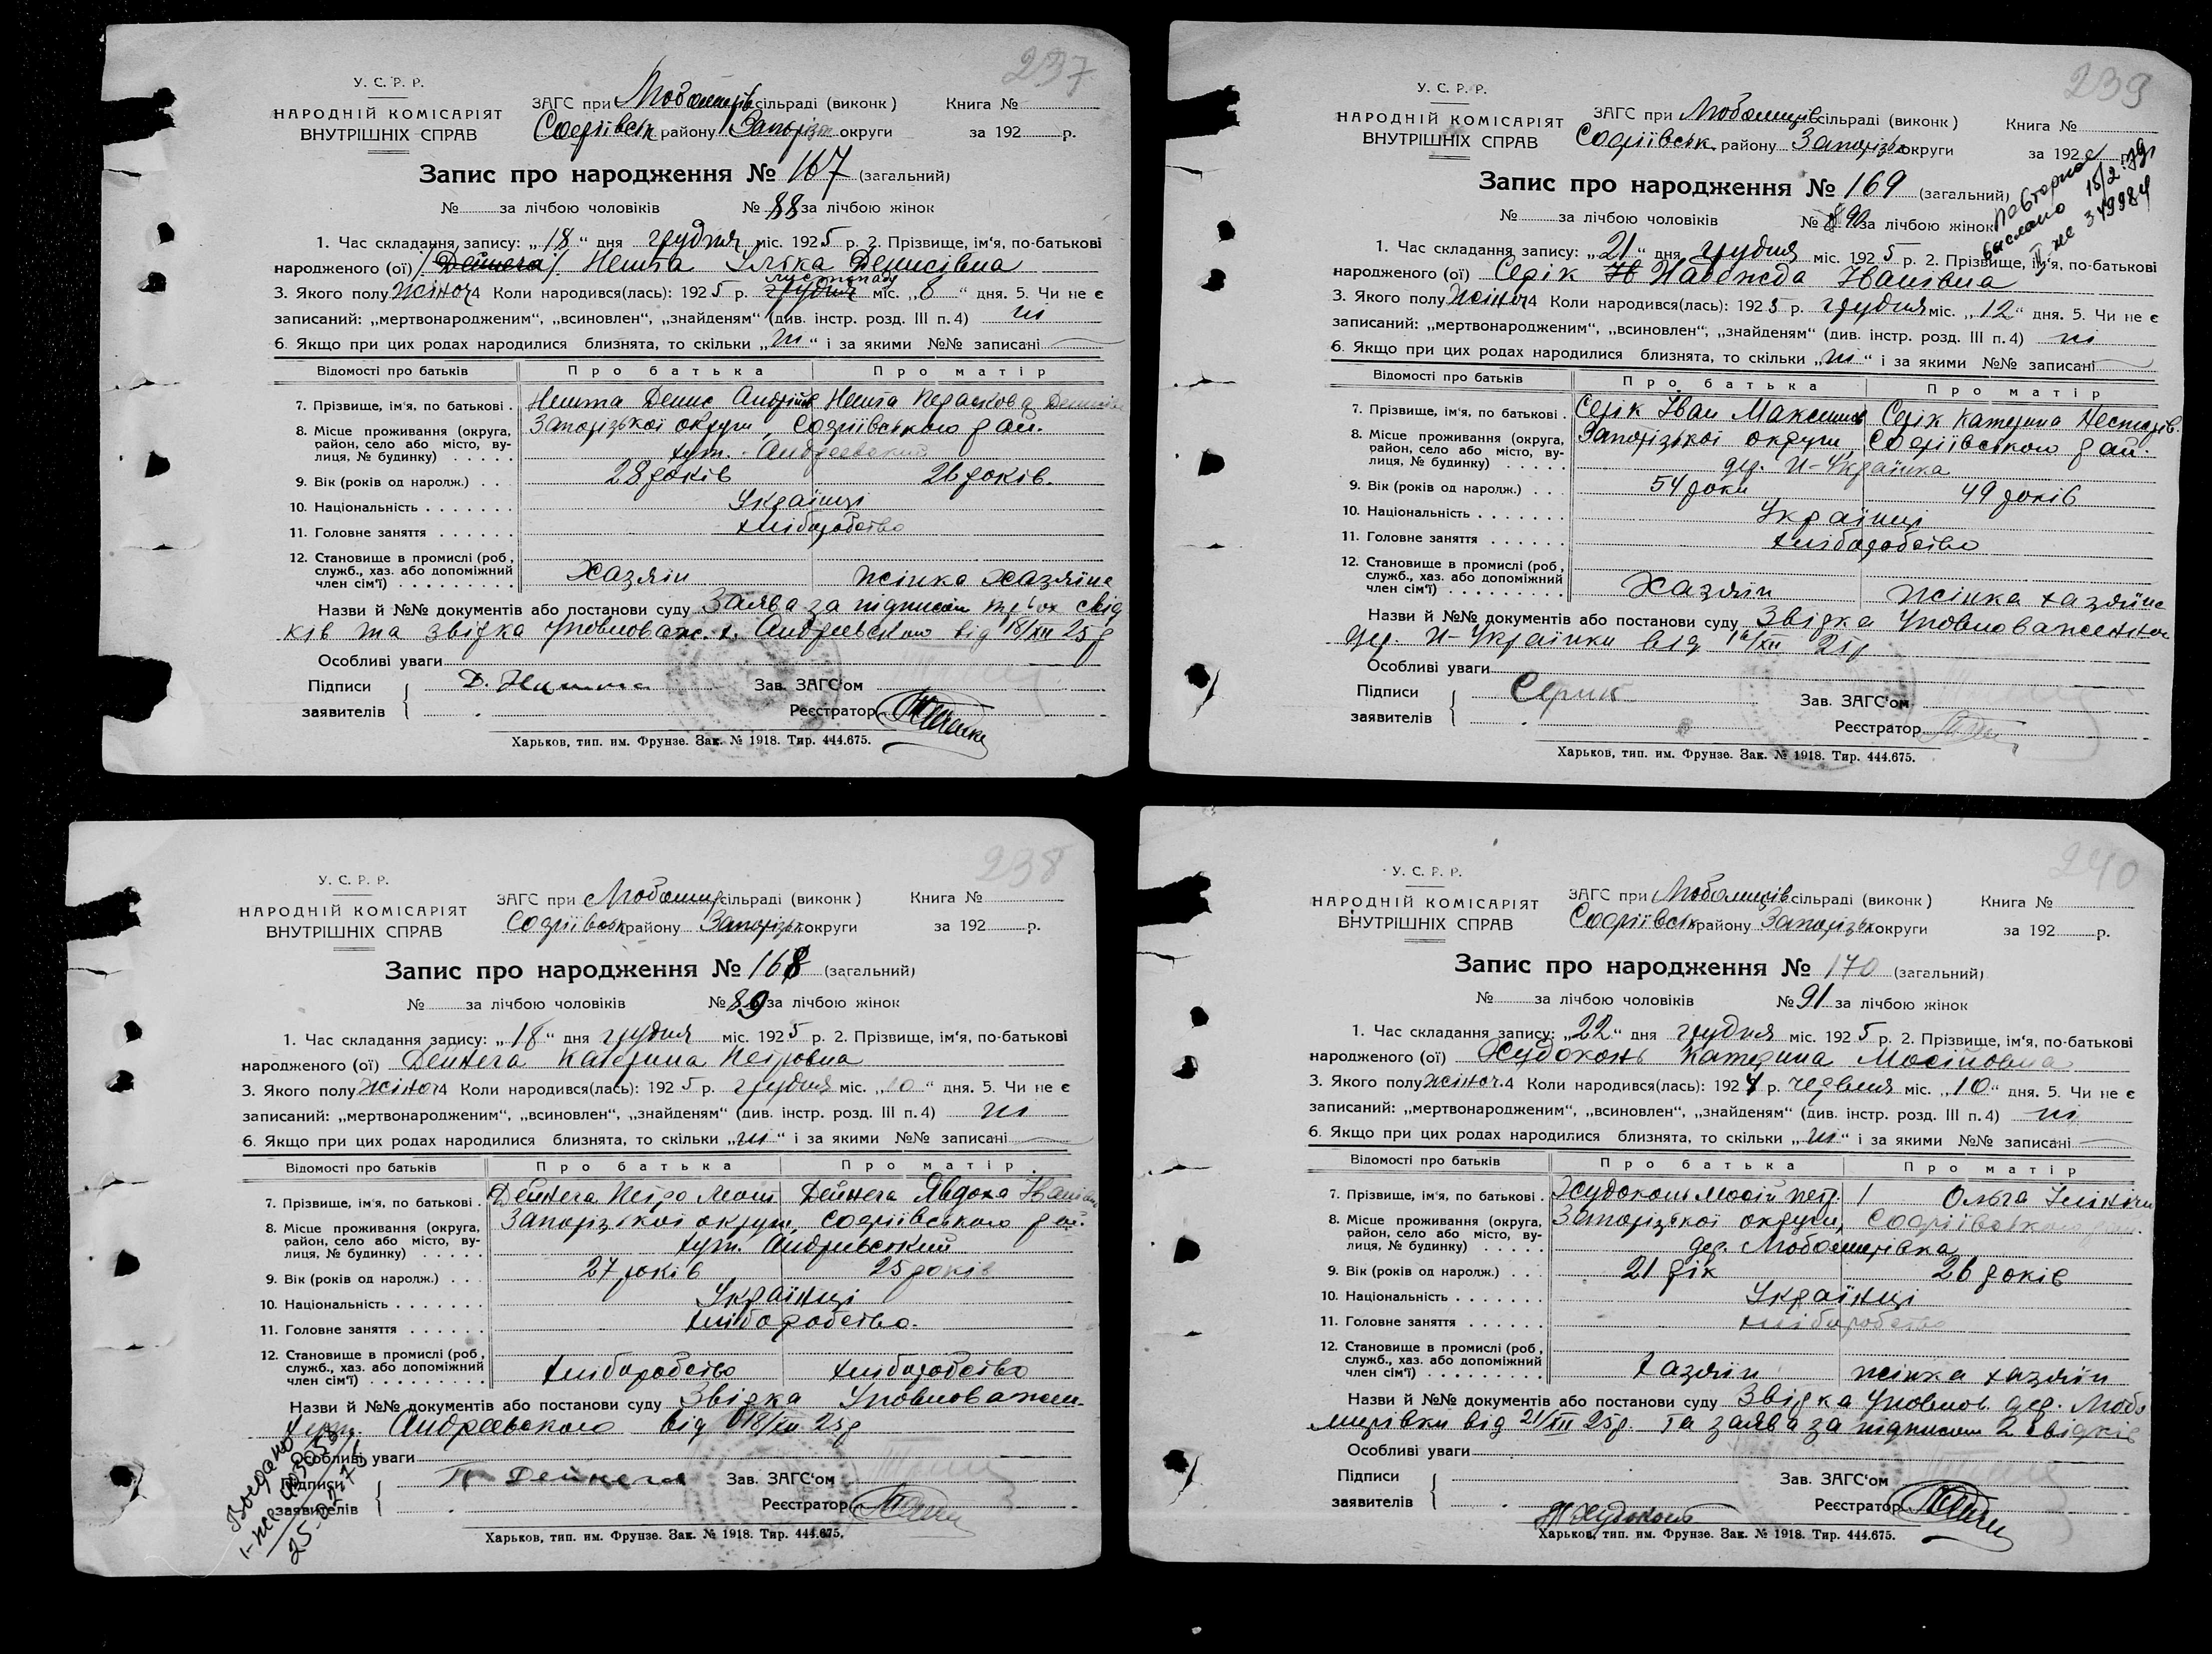 237
У. С. Р. Р.
НАРОДНІЙ КОМІСАРІЯТ
ВНУТРІШНІХ СПРАВ
ЗАГС при Любомирів сільраді (виконк) Книга №
Софіївськ району Запорізьк округи за 192 р.
Запис про народження № 167 (загальний)
№ за лічбою чоловіків № 88 за лічбою жінок
1. Час складання запису: „18" дня грудня міс. 1925 р. 2. Прізвище, ім'я, по-батькові
народженого (ої) /Дейнега/ Нешта Улітка Денисівна
листопаду
3. Якого полу жіноч 4 Коли народився(лась): 1925 р. грудня міс. „8" дня. 5. Чи не є
записаний: „мертвонародженим", „всиновлен", „знайденям" (див. інстр. розд. III п. 4) ні
6. Якщо при цих родах народилися близнята, то скільки „ні" і за якими №№ записані
Відомості про батьків Про батька Про матір
7. Прізвище, ім'я, по батькові . Нешта Денис Андрійов Нешта Парасковія
8. Місце проживання (округа, район, село або місто, вулиця, № будинку) Запорізької округи, Софіївського рай.
хут. Андреевский
9. Вік (років од наролж.) 28 років 26 років.
10. Національність Українці
11. Головне заняття хліборобство
12. Становище в промислі (роб, служб., хаз. або допоміжний член сім'ї) Хазяін жінка хазяіна
Назви й №№ документів або постанови суду Заява за підписом двох свід
ків та звідка уповноваж. х. Андреевського від 18/XII 25 р
Особливі уваги
Підписи заявителів Д. Нешта Зав. ЗАГС'ом
Реєстратор
Харьков, тип. им. Фрунзе. Зак. № 1918. Тир. 444.675.
239
У. С. Р. Р.
НАРОДНІЙ КОМІСАРІЯТ
ВНУТРІШНІХ СПРАВ
ЗАГС при Любомирів сільраді (виконк) Книга №
Софіївськ. району Запорізьк округи за 192 р.
Повторное
выслано 15/2
II ЖС 349984
Запис про народження № 169 (загальний)
№ за лічбою чоловіків № 90 за лічбою жінок
1. Час складання запису: „21" дня грудня міс. 1925 р. 2. Прізвище, ім'я, по-батькові
народженого (ої) Серік Надежда Іванівна
3. Якого полу жіноч 4 Коли народився(лась): 1925 р. грудня міс. „12" дня. 5. Чи не є
записаний: „мертвонародженим", „всиновлен", „знайденям" (див. інстр. розд. III п. 4) ні
6. Якщо при цих родах народилися близнята, то скільки „ні" і за якими №№ записані
Відомості про батьків Про батька Про матір
7. Прізвище, ім'я, по батькові . Серік Іван Максимов Серік Катерина Несторів.
8. Місце проживання (округа, район, село або місто, вулиця, № будинку) Запорізької округи, Софіївського рай.
дер. Н-Українка
9. Вік (років од наролж.) 54 роки 49 років
10. Національність Українці
11. Головне заняття хліборобство
12. Становище в промислі (роб, служб., хаз. або допоміжний член сім'ї) Хазяін жінка хазяїна
Назви й №№ документів або постанови суду Звідка Уповноваженного
дер. Н-Українки від 16/XII 25 р
Особливі уваги
Підписи заявителів Серик Зав. ЗАГС'ом
Реєстратор
Харьков, тип. им. Фрунзе. Зак. № 1918. Тир. 444.675.
238
У. С. Р. Р.
НАРОДНІЙ КОМІСАРІЯТ
ВНУТРІШНІХ СПРАВ
ЗАГС при Любомирів сільраді (виконк) Книга №
Софіївськ району Запорізьк округи за 192 р.
Запис про народження № 168 (загальний)
№ за лічбою чоловіків № 89 за лічбою жінок
1. Час складання запису: „18" дня грудня міс. 1925 р. 2. Прізвище, ім'я, по-батькові
народженого (ої) Дейнега Катерина Петровна
3. Якого полу жіноч 4 Коли народився(лась): 1925 р. грудня міс. „10" дня. 5. Чи не є
записаний: „мертвонародженим", „всиновлен", „знайденям" (див. інстр. розд. III п. 4) ні
6. Якщо при цих родах народилися близнята, то скільки „ні" і за якими №№ записані
Відомості про батьків Про батька Про матір
7. Прізвище, ім'я, по батькові . Дейнега Петро Дейнега Явдоха Іванівна
8. Місце проживання (округа, район, село або місто, вулиця, № будинку) Запорізької округи, Софіївського рай.
хут. Андрієвський
9. Вік (років од наролж.) 27 років 25 років
10. Національність Українці
11. Головне заняття хліборобство.
12. Становище в промислі (роб, служб., хаз. або допоміжний член сім'ї) хліборобство хліборобство
Назви й №№ документів або постанови суду Звідка Уповноважен.
хут. Андреевського від 18/XII 25 р
Особливі уваги
Підписи заявителів П Дейнега Зав. ЗАГС'ом
Реєстратор
Харьков, тип. им. Фрунзе. Зак. № 1918. Тир. 444.675.
240
У. С. Р. Р.
НАРОДНІЙ КОМІСАРІЯТ
ВНУТРІШНІХ СПРАВ
ЗАГС при Любомирів сільраді (виконк) Книга №
Софіївськ району Запорізьк округи за 192 р.
Запис про народження № 170 (загальний)
№ за лічбою чоловіків № 91 за лічбою жінок
1. Час складання запису: „22" дня грудня міс. 1925 р. 2. Прізвище, ім'я, по-батькові
народженого (ої) Худоконь Катерина Мосійовна
3. Якого полу жіноч. 4 Коли народився(лась): 1924 р. червня міс. „10" дня. 5. Чи не є
записаний: „мертвонародженим", „всиновлен", „знайденям" (див. інстр. розд. III п. 4) ні
6. Якщо при цих родах народилися близнята, то скільки „ні" і за якими №№ записані
Відомості про батьків Про батька Про матір
7. Прізвище, ім'я, по батькові . Худоконь Мосій петр. Ольга
8. Місце проживання (округа, район, село або місто, вулиця, № будинку) Запорізької округи, Софіївського рай.
дер. Любомирівка
9. Вік (років од наролж.) 21 рік 26 років
10. Національність Українці
11. Головне заняття хліборобство
12. Становище в промислі (роб, служб., хаз. або допоміжний член сім'ї) хазяін жінка хазяін
Назви й №№ документів або постанови суду Звідка Уповнов. дер. Любо
мирівки від 21/XII 25 р. та заява за підписом 2 свідків
Особливі уваги
Підписи заявителів Худоконь Зав. ЗАГС'ом
Реєстратор
Харьков, тип. им. Фрунзе. Зак. № 1918. Тир. 444.675.